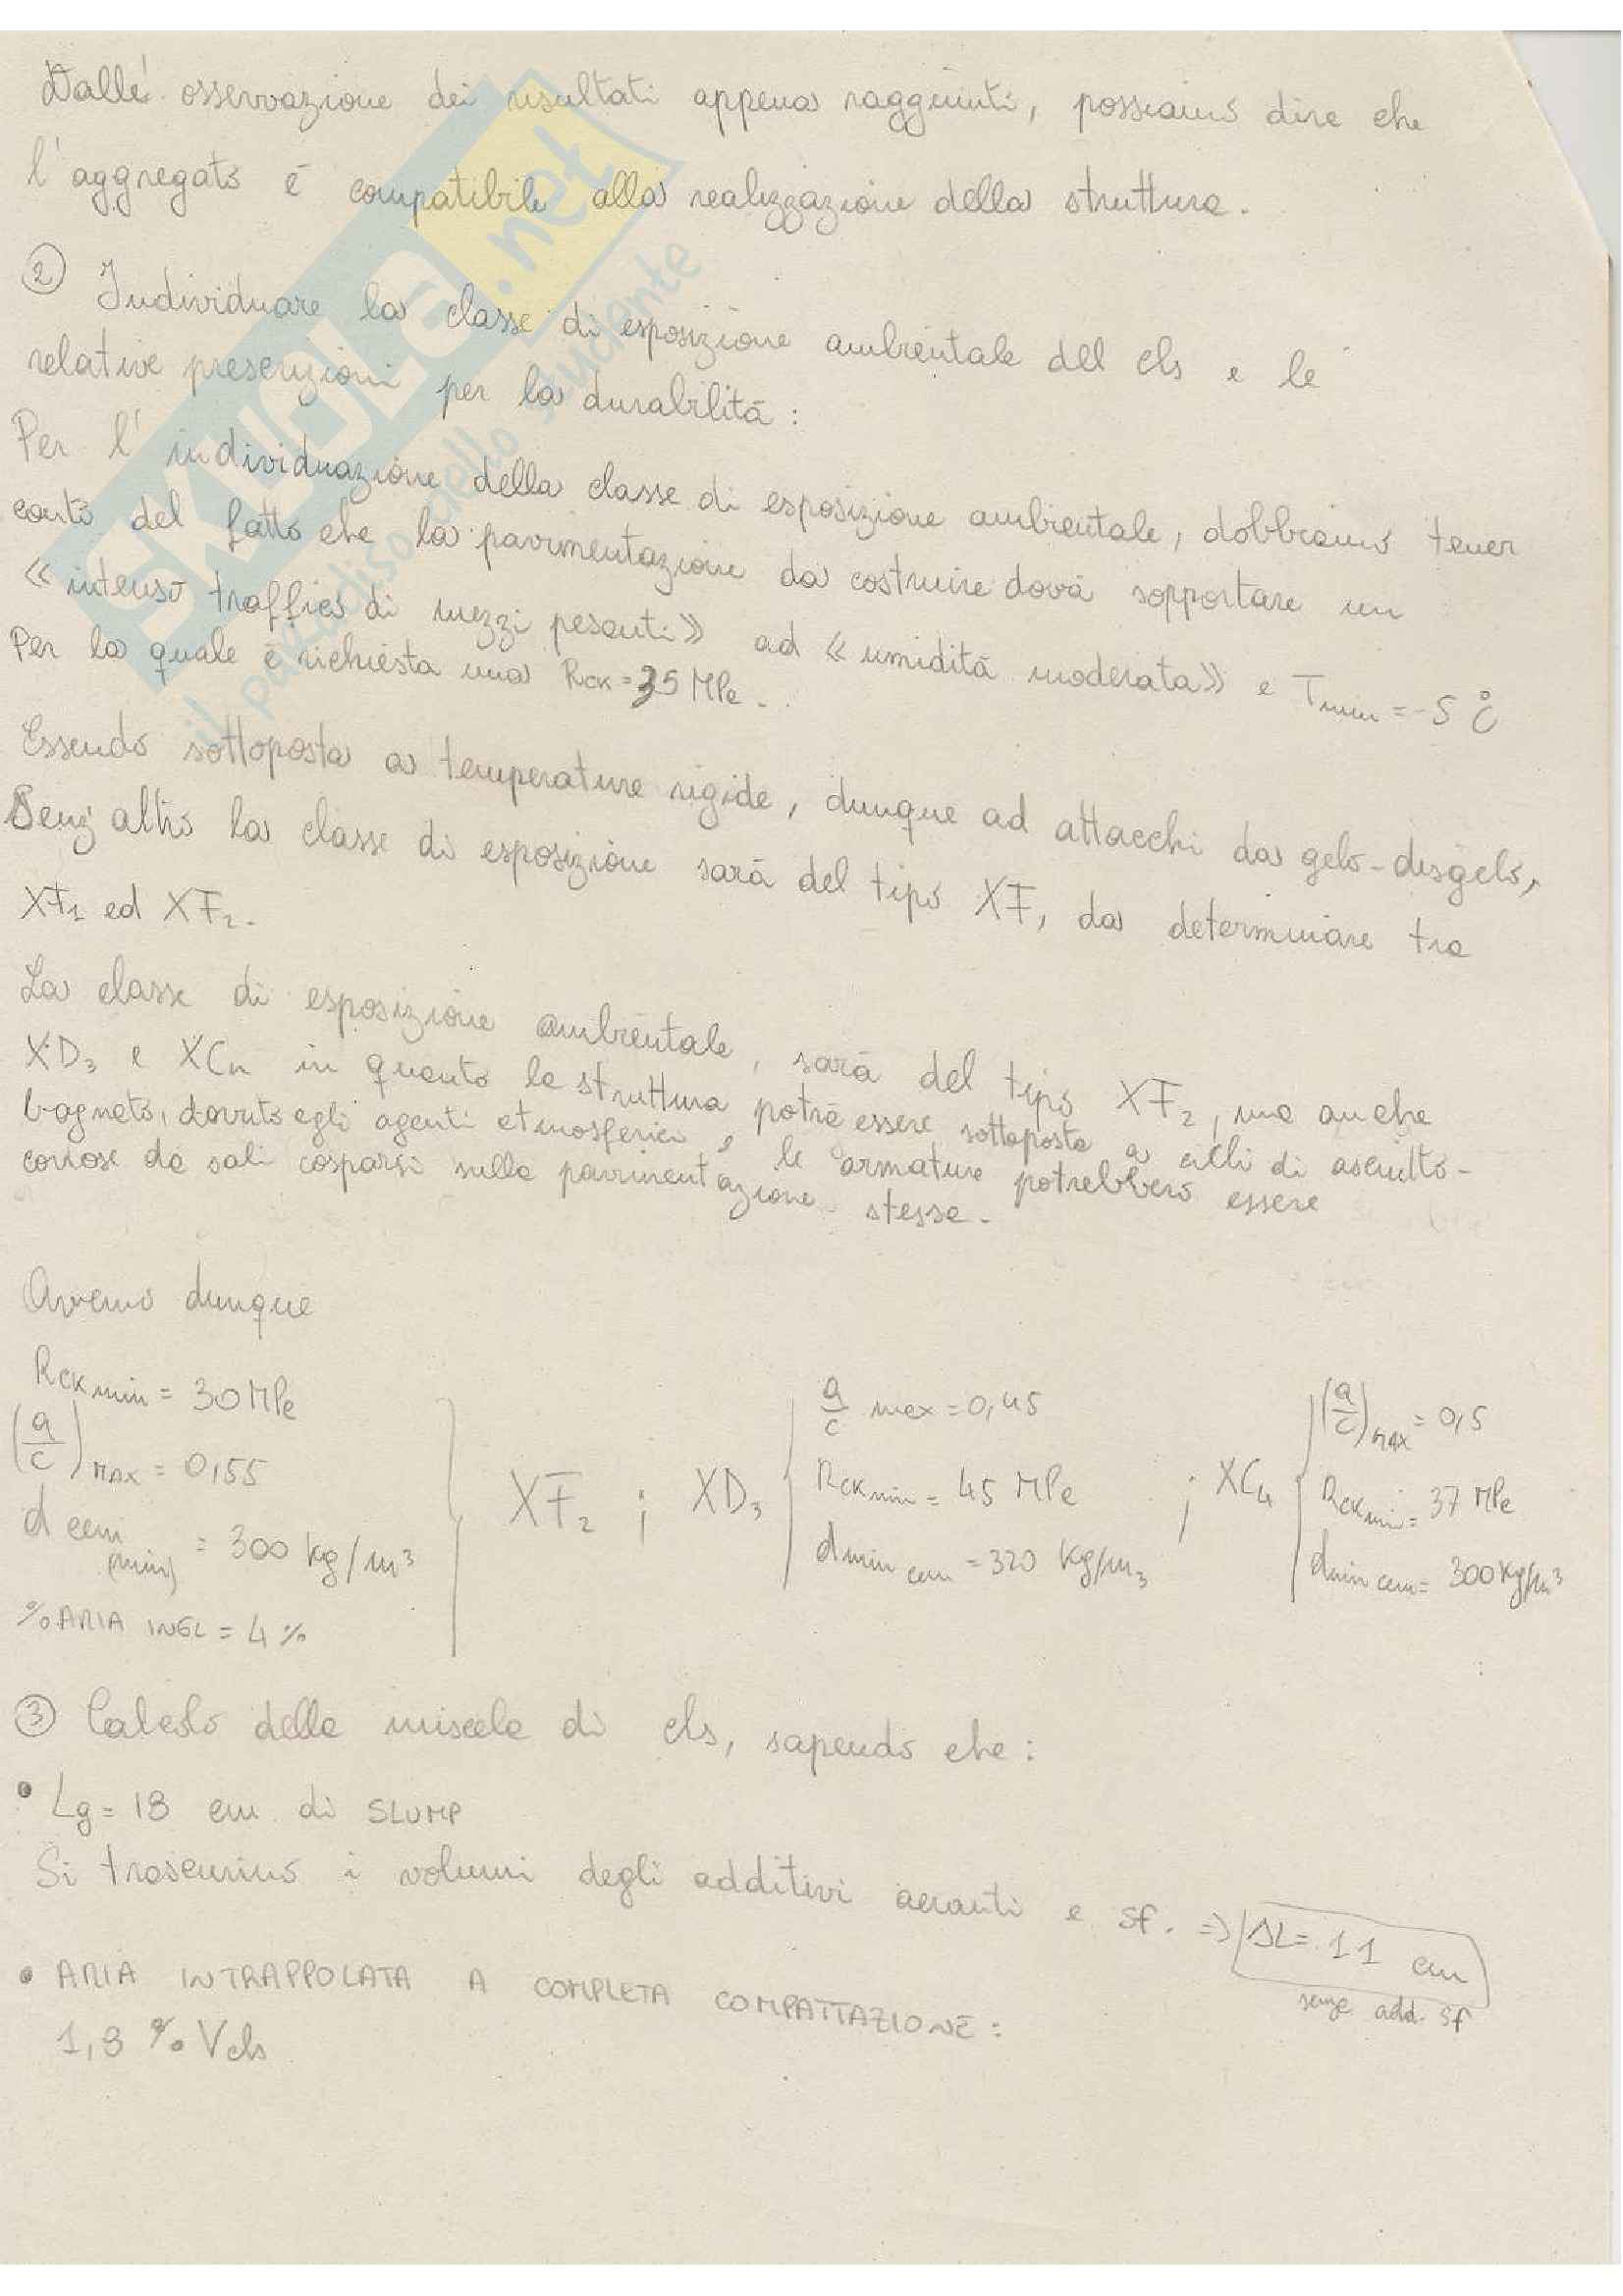 Dall' osservazione dei risultati appena raggiunti, possiamo dire che
l'aggregato è compatibile alla realizzazione della struttura.
② Individuare la classe di esposizione ambientale del cls e le
relative prescrizioni per la durabilità:
Per l'individuazione della classe di esposizione ambientale, dobbiamo tener
conto del fatto che la pavimentazione da costruire dovà sopportare un
«intenso traffico di mezzi pesanti» ad «umidità moderata» e Tmin = -5 °C
Per la quale è richiesta una Rck = 35 MPa.
Essendo sottoposta a temperature rigide, dunque ad attacchi da gelo-disgelo,
Senz'altro la classe di esposizione sarà del tipo XF, da determinare tra
XF1 ed XF2.
La classe di esposizione ambientale, sarà del tipo XF2, ma anche
XD3 e XC4 in quanto la struttura potrà essere sottoposta a cicli di asciutto-
bagnato, dovuto agli agenti atmosferici, le armature potrebbero essere
corrose da sali cosparsi sulla pavimentazione stessa.
Avremo dunque
Rck min = 30 MPa
(a/c) MAX = 0,55
d cem (min) = 300 kg/m³
% ARIA INGL = 4 %
XF2 ; XD3
a/c max = 0,45
Rck min = 45 MPa
d min cem = 320 kg/m3
; XC4
(a/c) MAX = 0,5
Rck min = 37 MPa
dmin cem = 300 kg/m³
③ Calcolo della miscela di cls, sapendo che:
• Lg = 18 cm di SLUMP
Si trascurino i volumi degli additivi aeranti e sf. => ΔL = 11 cm
senza add. sf
• ARIA INTRAPPOLATA A COMPLETA COMPATTAZIONE:
1,8 % Vcls
SKUOLA.net
il paradiso dello studente